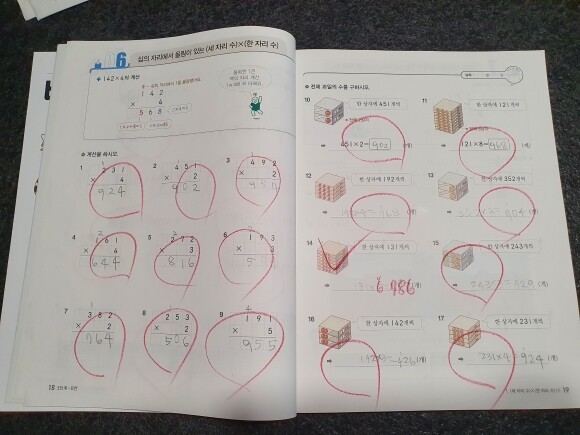 6
십의 자리에서 올림이 있는 (세 자리 수)×(한 자리 수)
142×4의 계산
1 4 2
× 4
5 6 8
계산을 하시오.
1
2 3 1
× 4
9 2 4
2
4 5 1
× 2
9 0 2
3
4 9 2
× 2
4
1 6 1
× 4
6 4 4
5
2 7 2
× 3
8 1 6
6
1 9 3
× 3
7
3 8 2
× 2
7 6 4
8
2 5 3
× 2
5 0 6
9
1 9 1
× 5
9 5 5
18
전체 과일의 수를 구하시오.
10
한 상자에 451개씩
451×2=902 (개)
11
한 상자에 121개씩
121×8=968 (개)
12
한 상자에 192개씩
(개)
13
한 상자에 352개씩
(개)
14
한 상자에 131개씩
6 786 (개)
15
한 상자에 243개씩
(개)
16
한 상자에 142개씩
(개)
17
한 상자에 231개씩
231×4=924 (개)
19